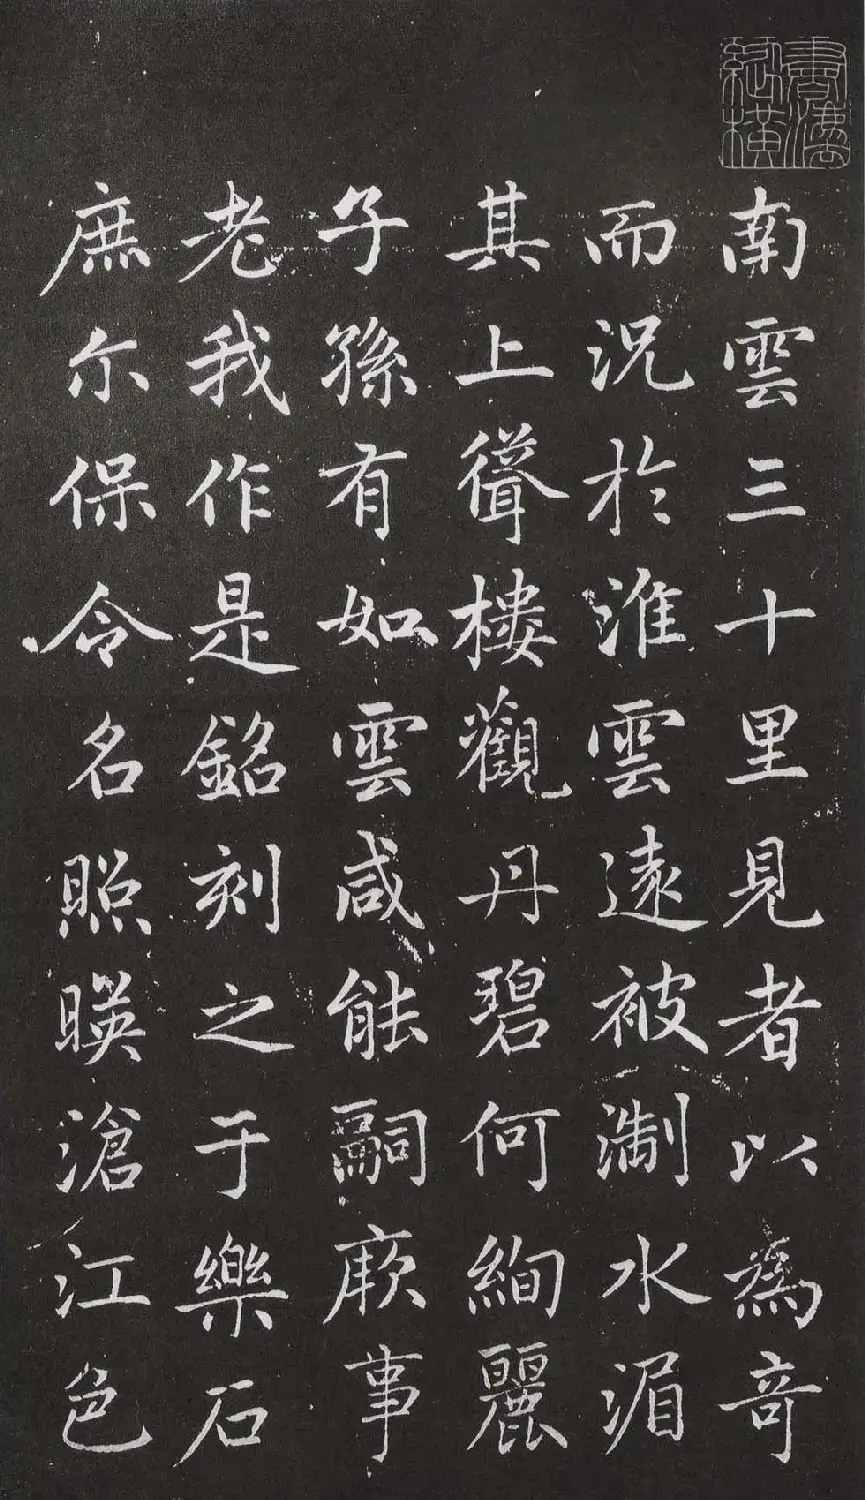 南雲三十里見者以為奇
而況於淮雲遠被淛水湄
其上聳樓觀丹碧何絢麗
子孫有如雲咸能嗣厥事
老我作是銘刻之于樂石
庶尓保令名照暎滄江色
書法縱橫